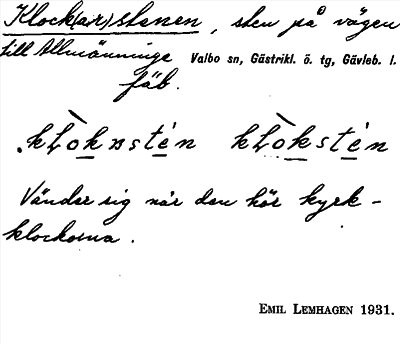 Klock(ar)stenen, sten på vägen
till Allmänninge Valbo sn, Gästrikl. ö. tg, Gävleb. l.
fäb.
Vänder sig när den hör kyrk-
klockorna.
EMIL LEMHAGEN 1931.